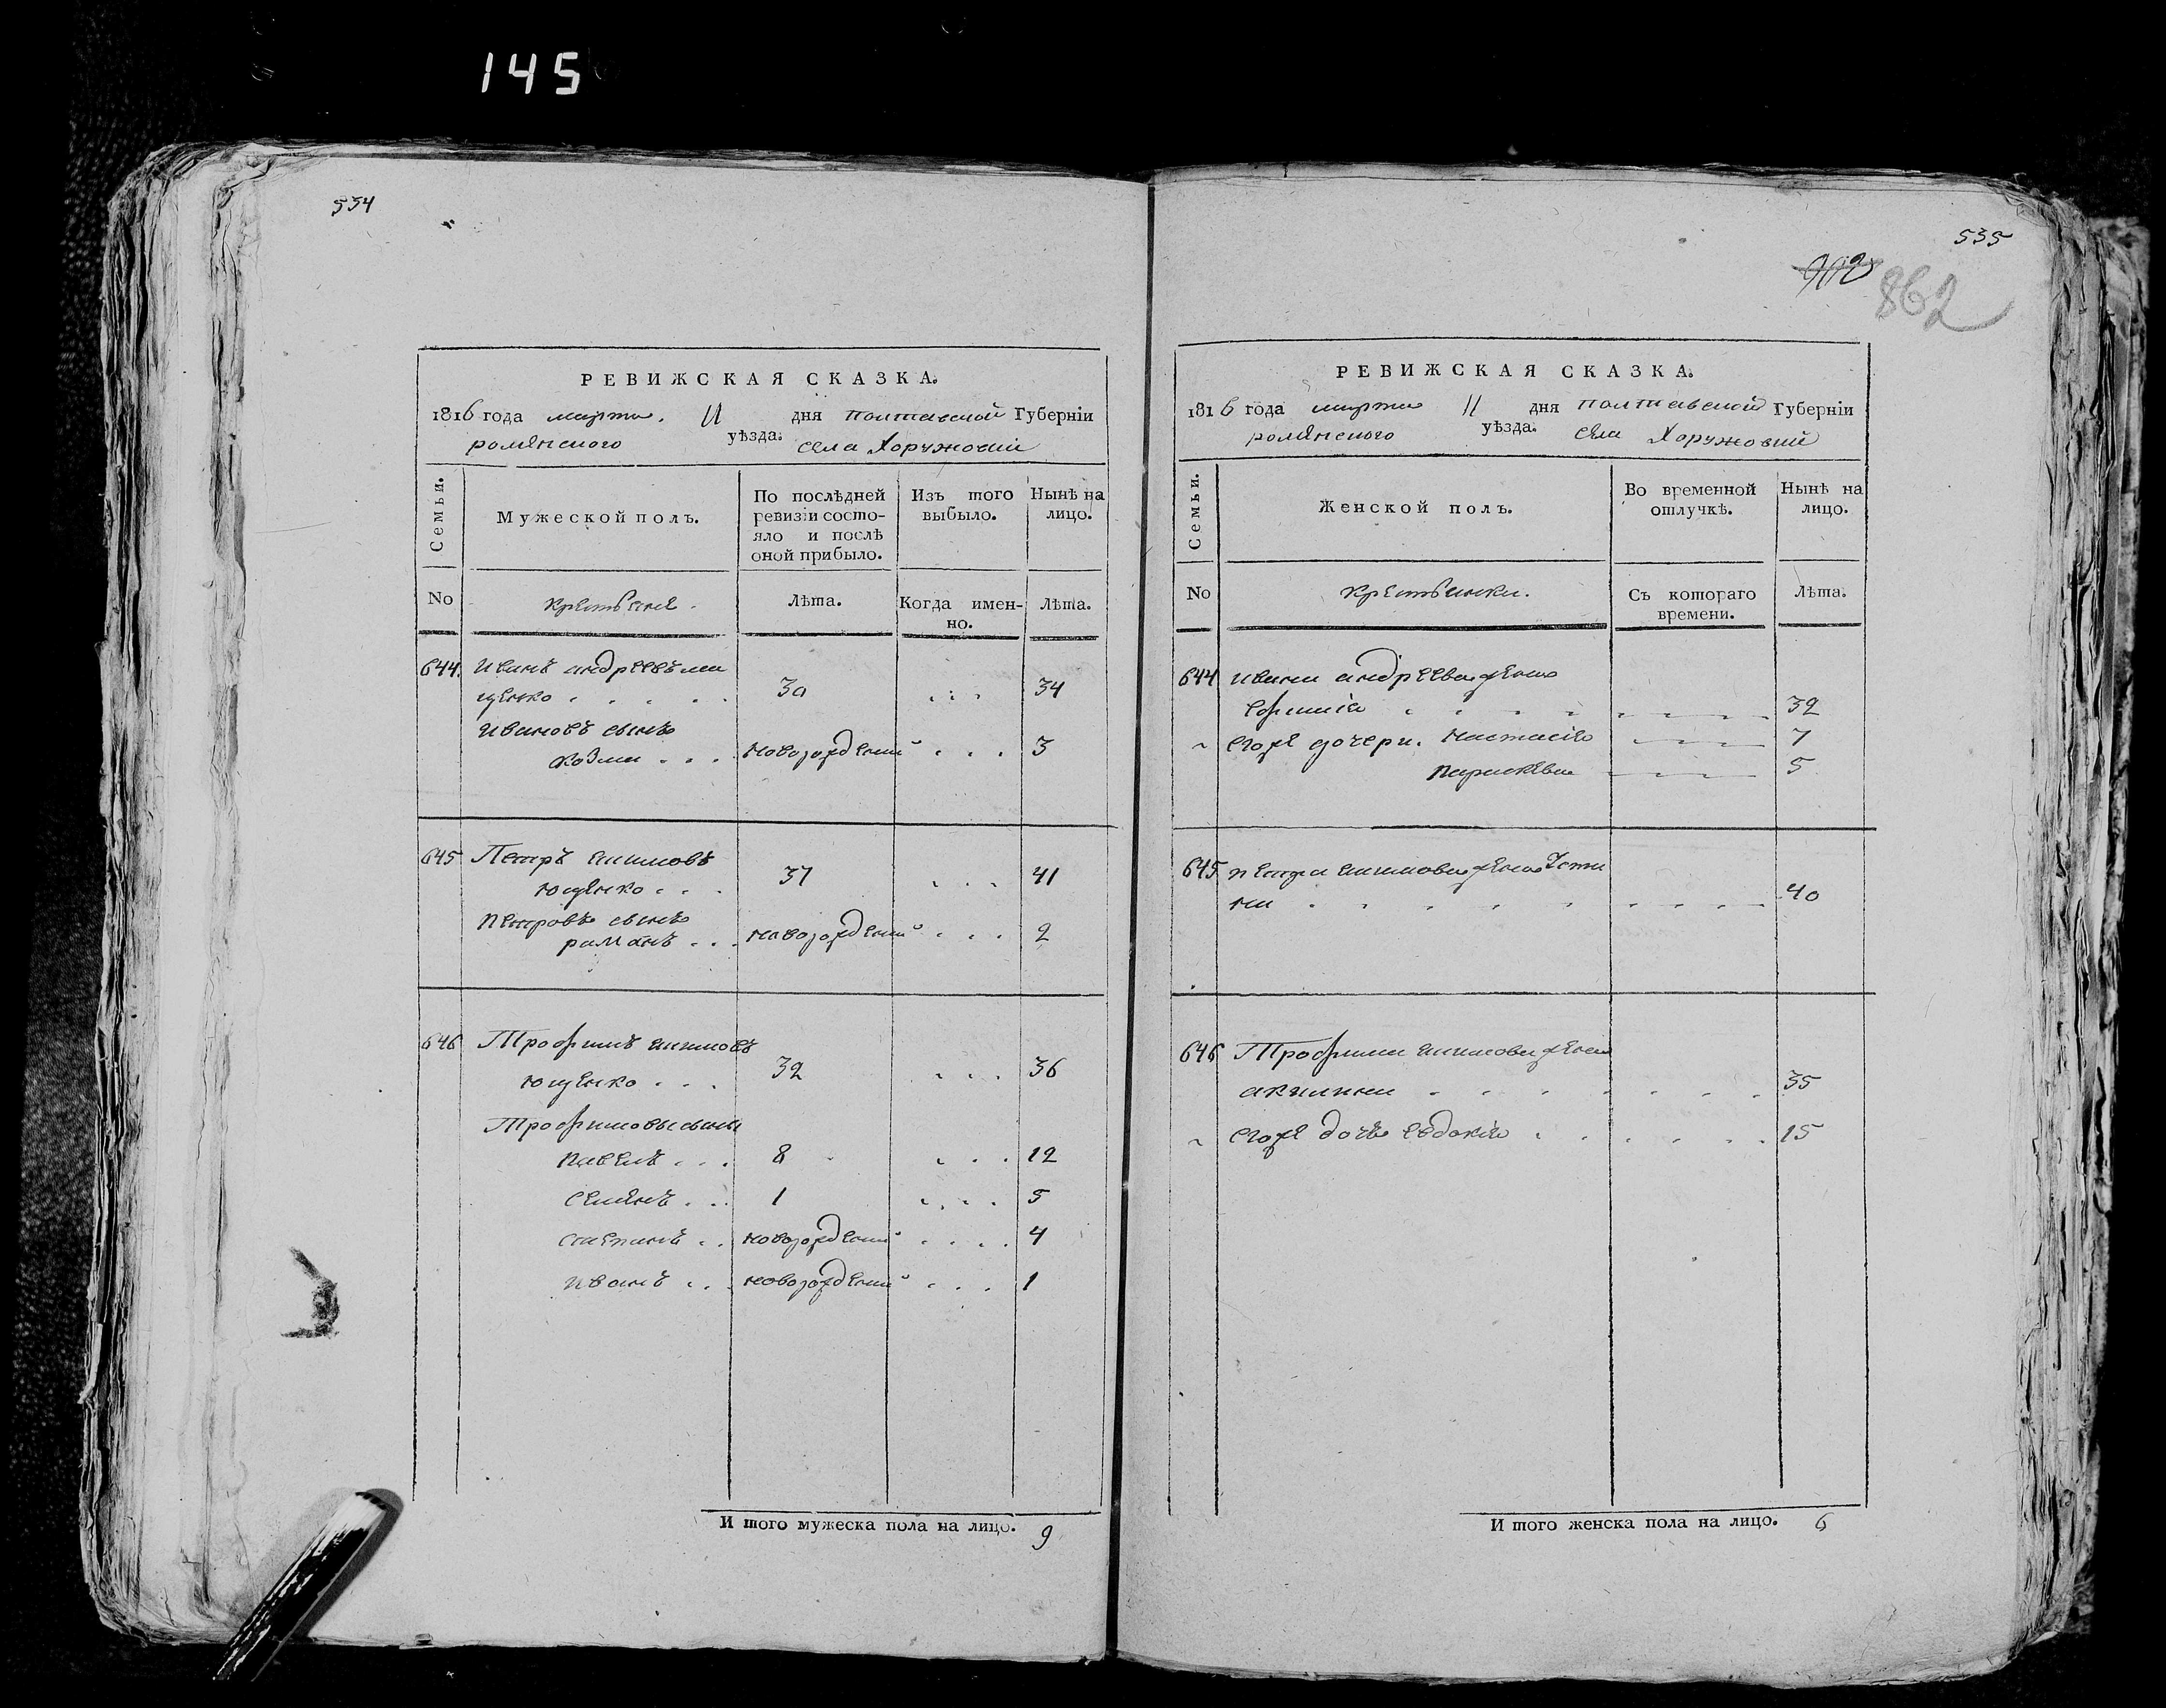 145
554
РЕВИЖСКАЯ СКАЗКА.
1816 года марта 11 дня полтавской Губернїи
роменского уѣзда. села Хоружовки
Семьи.
Мужеской полъ.
По послѣдней ревизїи состояло и послѣ оной прибыло.
Изъ того выбыло.
Нынѣ на лицо.
No
крестьяне.
Лѣта.
Когда именно.
Лѣта.
644. Иванъ андреевъ ми
щенко . . . . . 30 . . . 34
Ивановъ сынъ
козма . . . новорожденый . . . 3
645 Петръ акимовъ
ющенко . . . 37 . . . 41
Петровъ сынъ
романъ . . . новорожденый . . . 2
646 Трофимъ акимовъ
ющенко . . . 32 . . . 36
Трофимовы сыны
павелъ . . . 8 . . . 12
семенъ . . . 1 . . . 5
степанъ . . новорожденый . . . . 4
иванъ . . . новорожденый . . . 1
И того мужеска пола на лицо. 9
535
902
862
РЕВИЖСКАЯ СКАЗКА.
1816 года марта 11 дня полтавской Губернїи
роменского уѣзда. села Хоружовки
Семьи.
Женской полъ.
Во временной отлучкѣ.
Нынѣ на лицо.
No
крестьянки.
Съ котораго времени.
Лѣта.
644 ивана андреева жена
. . . . . . . . 32
его же дочери. настасія 7
параскева 5
645 петра акимова жена Усти
на . . . . . . . . 40
646 Трофима акимова жена
акилина . . . . . . . 35
его же дочь евдокія . . . . . . 15
И того женска пола на лицо. 6